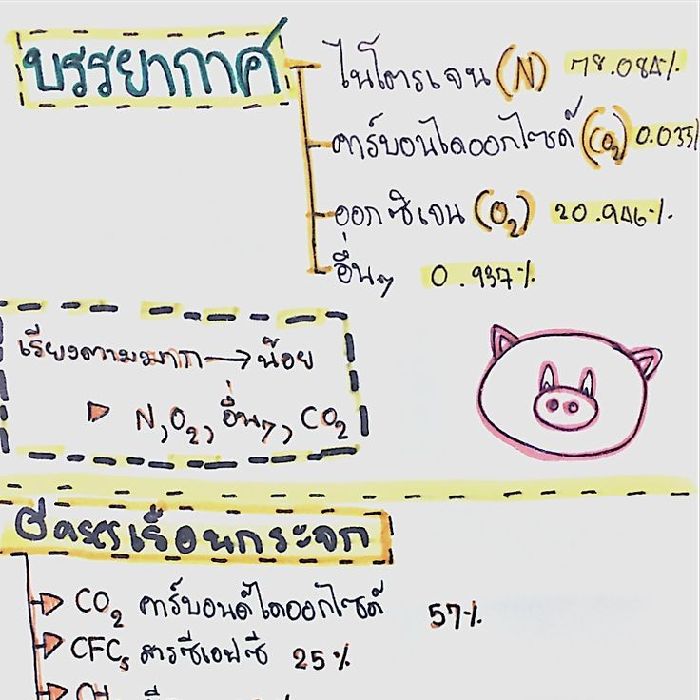 บรรยากาศ
ไนโตรเจน (N) 78.084%
คาร์บอนไดออกไซด์ (CO2) 0.033%
ออกซิเจน (O2) 20.946%
อื่นๆ 0.937%
เรียงตามมาก → น้อย
N, O2, อื่นๆ, CO2
ก๊าซเรือนกระจก
CO2 คาร์บอนด์ไดออกไซด์ 57%
CFCs สารซีเอฟซี 25%